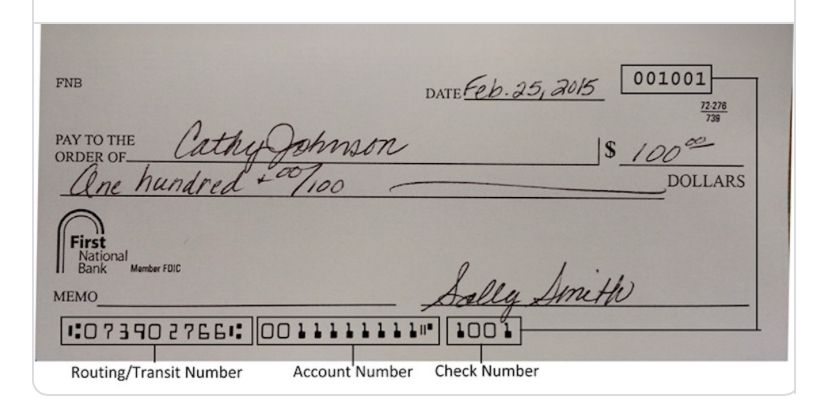 FNB
DATE Feb. 25, 2015 001001
72-276
739
PAY TO THE
ORDER OF Cathy Johnson $ 100 00
One hundred + 00/100 DOLLARS
First
National
Bank Member FDIC
MEMO Sally Smith
⑆073902766⑆ 0011111111⑈ 1001
Routing/Transit Number Account Number Check Number